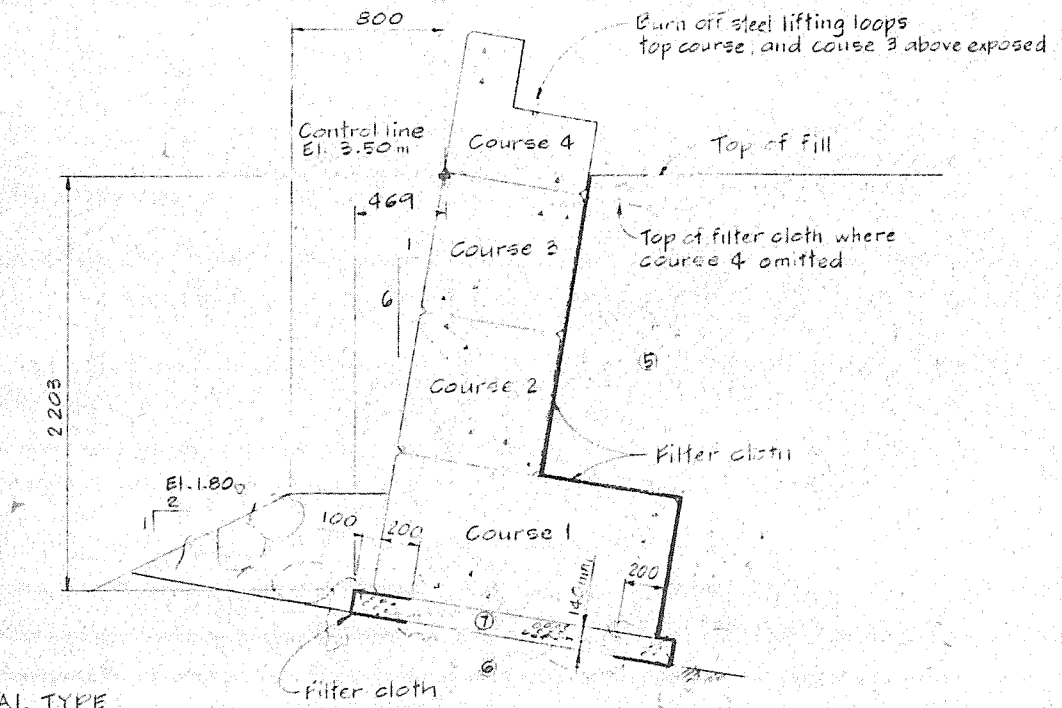 800
Burn off steel lifting loops
top course, and couse 3 above exposed
Control line
El. 3.50m
Course 4
Top of fill
469
1
6
Course 3
Top of filter cloth where
course 4 omitted
2203
5
Course 2
Filter cloth
El. 1.80
2
1
100
200
Course 1
140 min
200
7
6
Filter cloth
AL TYPE